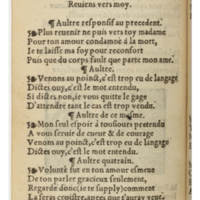 Reuiens vers moy.
¶ Aultre responsif au precedent.
Plus reuenir ne puis vers toy madame
Pour ton amour condamné à la mort,
Ie te laisse ma foy pour reconfort
Puis que du corps fault que parte mon ame.
¶ Aultre.
Venons au poinct, c'est trop eu de langage
Dictes ouy, c'est le mot entendu,
Si dictes non, ie vous quitte le gage
D'attendre tant le cas est trop vendu.
¶ Aultre de ce mesme.
Mon seul espoir à tousiours pretendu
A vous seruir de cueur & de courage
Venons au poinct, c'est trop eu de langage
Dictes ouy, c'est le mot entendu.
¶ Aultre quatrain.
Volunté fut en ton amour esmeue
De ton parler gracieux seulement,
Regarde donc (ie te supply) comment
La feras croistre, apres que t'auray veue.